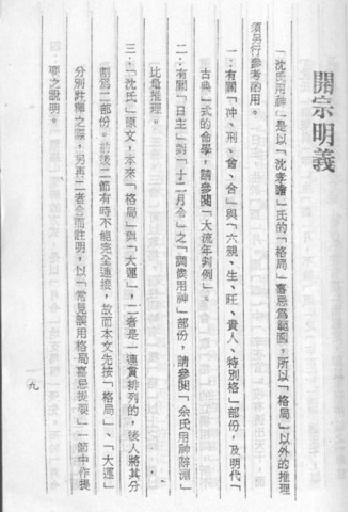 開宗明義
「沈氏用神」是以「沈孝瞻」氏的「格局」喜忌爲範圍，所以「格局」以外的推理
須另行參考酌用。
一：有關「冲、刑、會、合」與「六親、生、旺、貴人、特別格」部份，及明代「
古典」式的命學，請參閱「大流年判例」。
二：有關「日主」對「十二月令」之「調候用神」部份，請參閱「余氏用神辭淵」
比電推理。
三：「沈氏」原文，本來「格局」與「大運」，二者是一連貫排列的，後人將其分
割爲二部份。前後二節有時不能完全連接，故而本文先按「格局」、「大運」
分別註釋之際，另再二者合而註明，以「常見誤用格局喜忌提要」一節中作提
之說明。
九